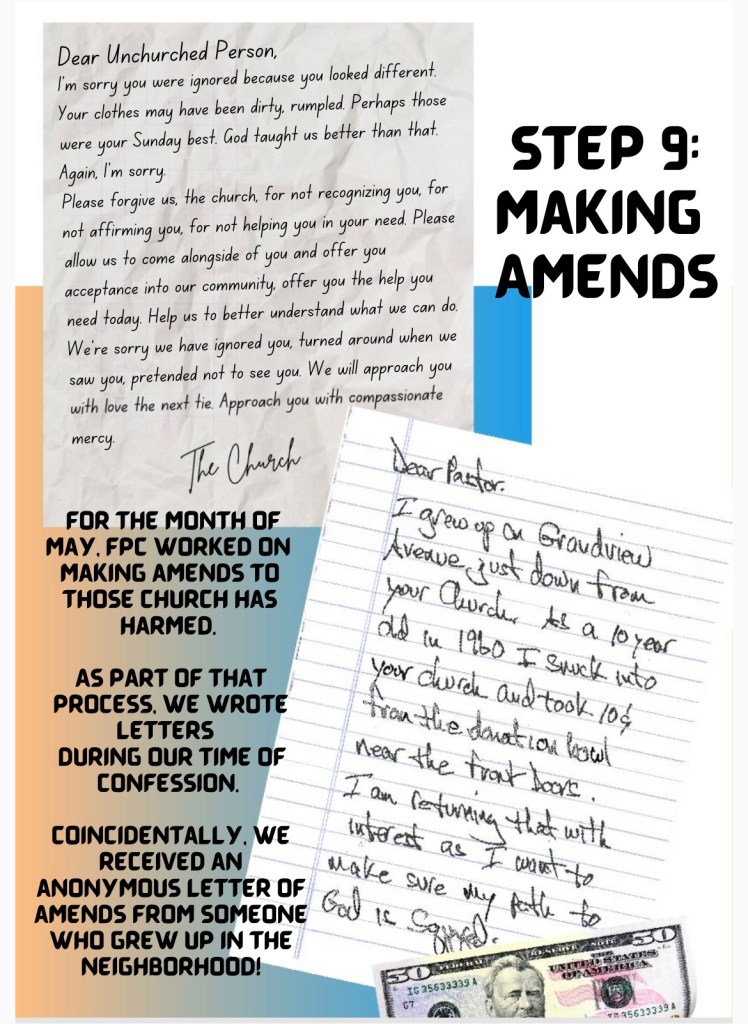 Dear Unchurched Person,
I'm sorry you were ignored because you looked different.
Your clothes may have been dirty, rumpled. Perhaps those
were your Sunday best. God taught us better than that.
Again, I'm sorry.
Please forgive us, the church, for not recognizing you, for
not affirming you, for not helping you in your need. Please
allow us to come alongside of you and offer you
acceptance into our community, offer you the help you
need today. Help us to better understand what we can do.
We're sorry we have ignored you, turned around when we
saw you, pretended not to see you. We will approach you
with love the next tie. Approach you with compassionate
mercy.
The Church
STEP 9:
MAKING
AMENDS
FOR THE MONTH OF
MAY, FPC WORKED ON
MAKING AMENDS TO
THOSE CHURCH HAS
HARMED.
AS PART OF THAT
PROCESS, WE WROTE
LETTERS
DURING OUR TIME OF
CONFESSION.
COINCIDENTALLY, WE
RECEIVED AN
ANONYMOUS LETTER OF
AMENDS FROM SOMEONE
WHO GREW UP IN THE
NEIGHBORHOOD!
Dear Pastor.
I grew up on Grandview
Avenue just down from
your Church. As a 10 year
old in 1960 I snuck into
your church and took 10¢
from the donation bowl
near the front doors.
I am returning that with
interest as I want to
make sure my path to
God is
50 FEDERAL RESERVE NOTE 50
THE UNITED STATES
OF AMERICA
IG 35633339 A
G7
35633339 A